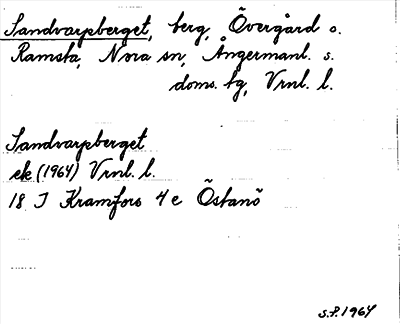 Sandvarpsberget, berg, Övergård o.
Ramsta, Nora sn, Ångermanl. s.
doms. tg, Vrnl. l.
Sandvarpberget
ek (1964) Vrnl. l.
18 I Kramfors 4 e Östanö
S.P. 1964